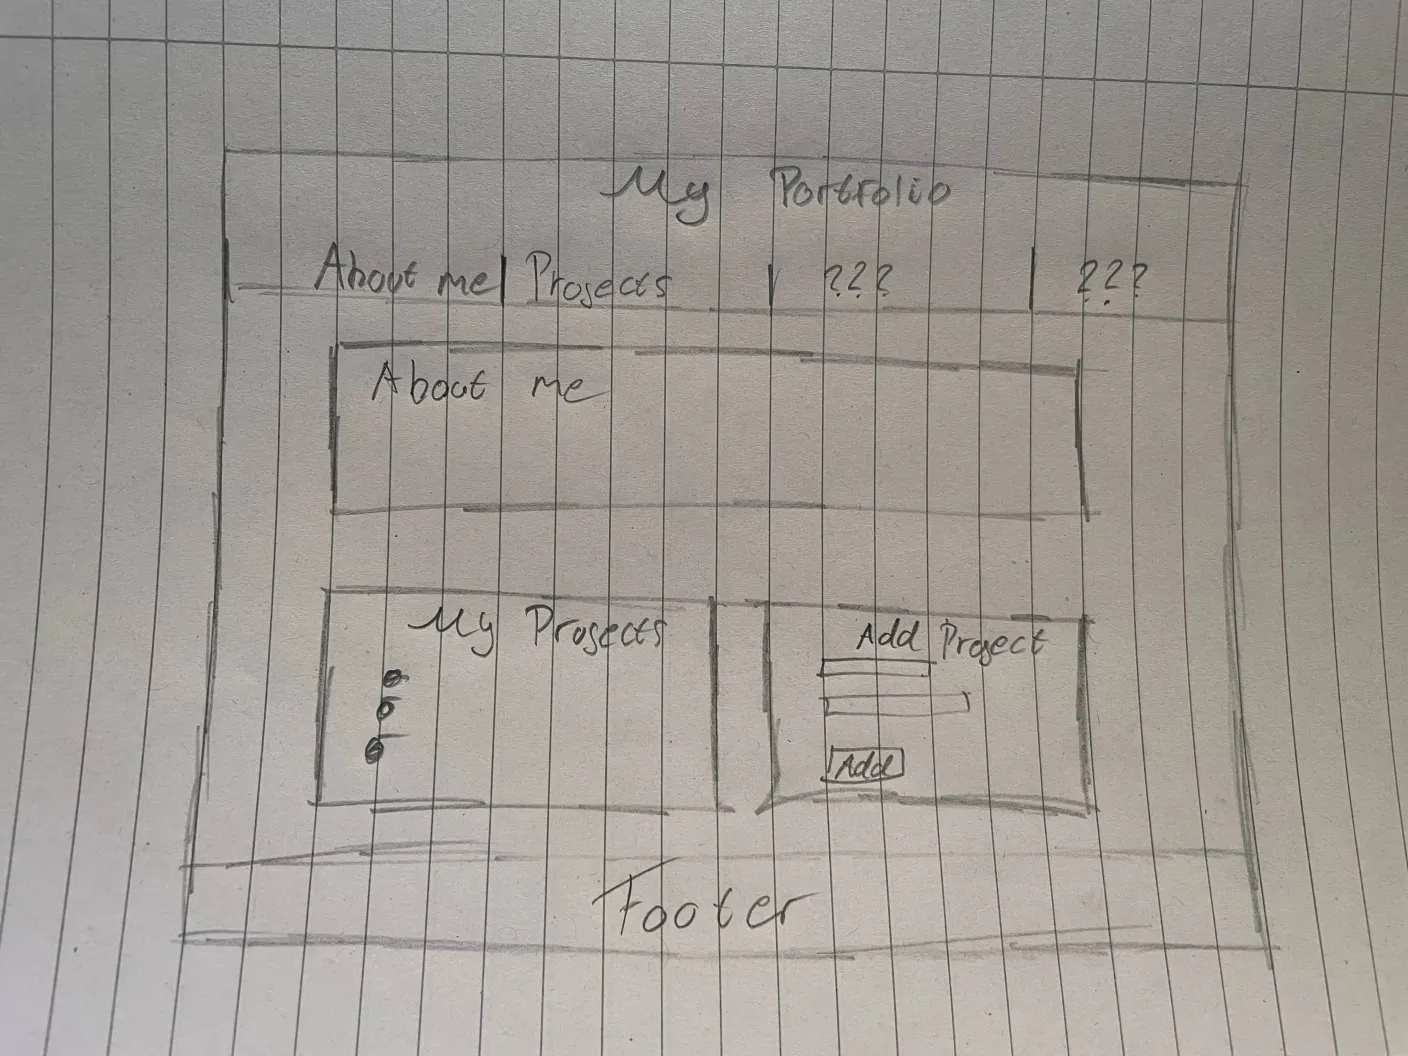 My Portfolio
About me | Projects | ??? | ???
About me
My Projects
Add Project
Add
Footer